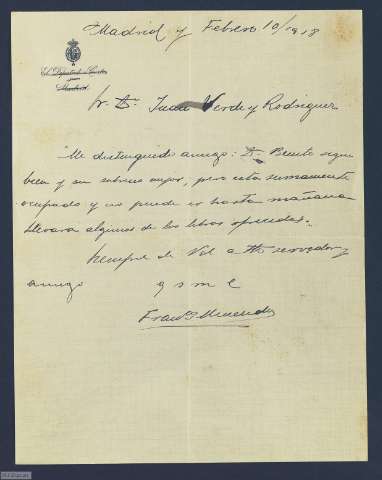 Madrid y Febrero 10/1918
El Diputado a Cortes
por
Madrid
Sr. Dn. Juan Verde y Rodriguez
Mi distinguido amigo: Dn. Benito sigue
bien y su sobrino mejor, pero esta sumamente
ocupado y no puede ir hasta mañana
llevara algunos de los libros ofrecidos.
Siempre de Vd. affmo servidor y
amigo q s m e